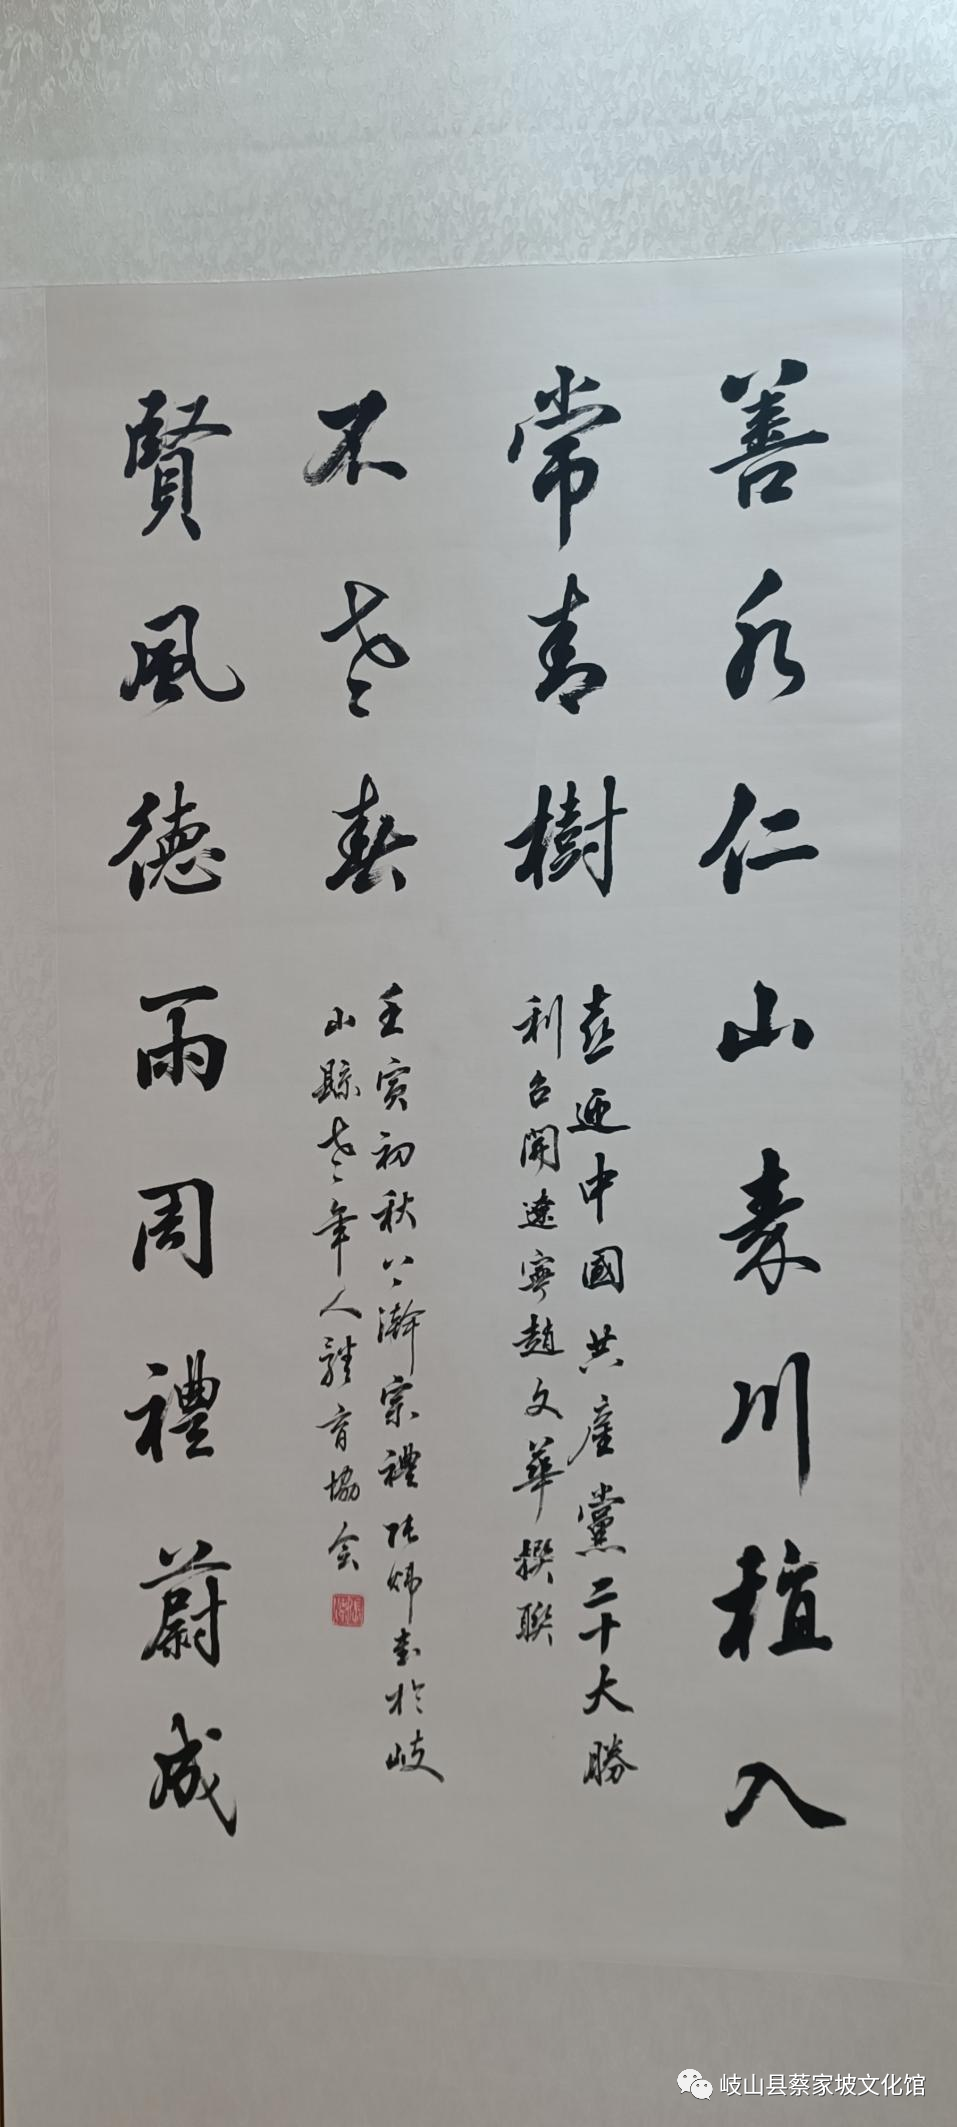 善水仁山秦川植入
常青樹
喜迎中國共產黨二十大勝
利召開遼寧趙文華撰聯
賢風德雨周禮蔚成
不老春
壬寅初秋八瀚宗禮張煒書於岐
山縣老年人體育協會
岐山县蔡家坡文化馆